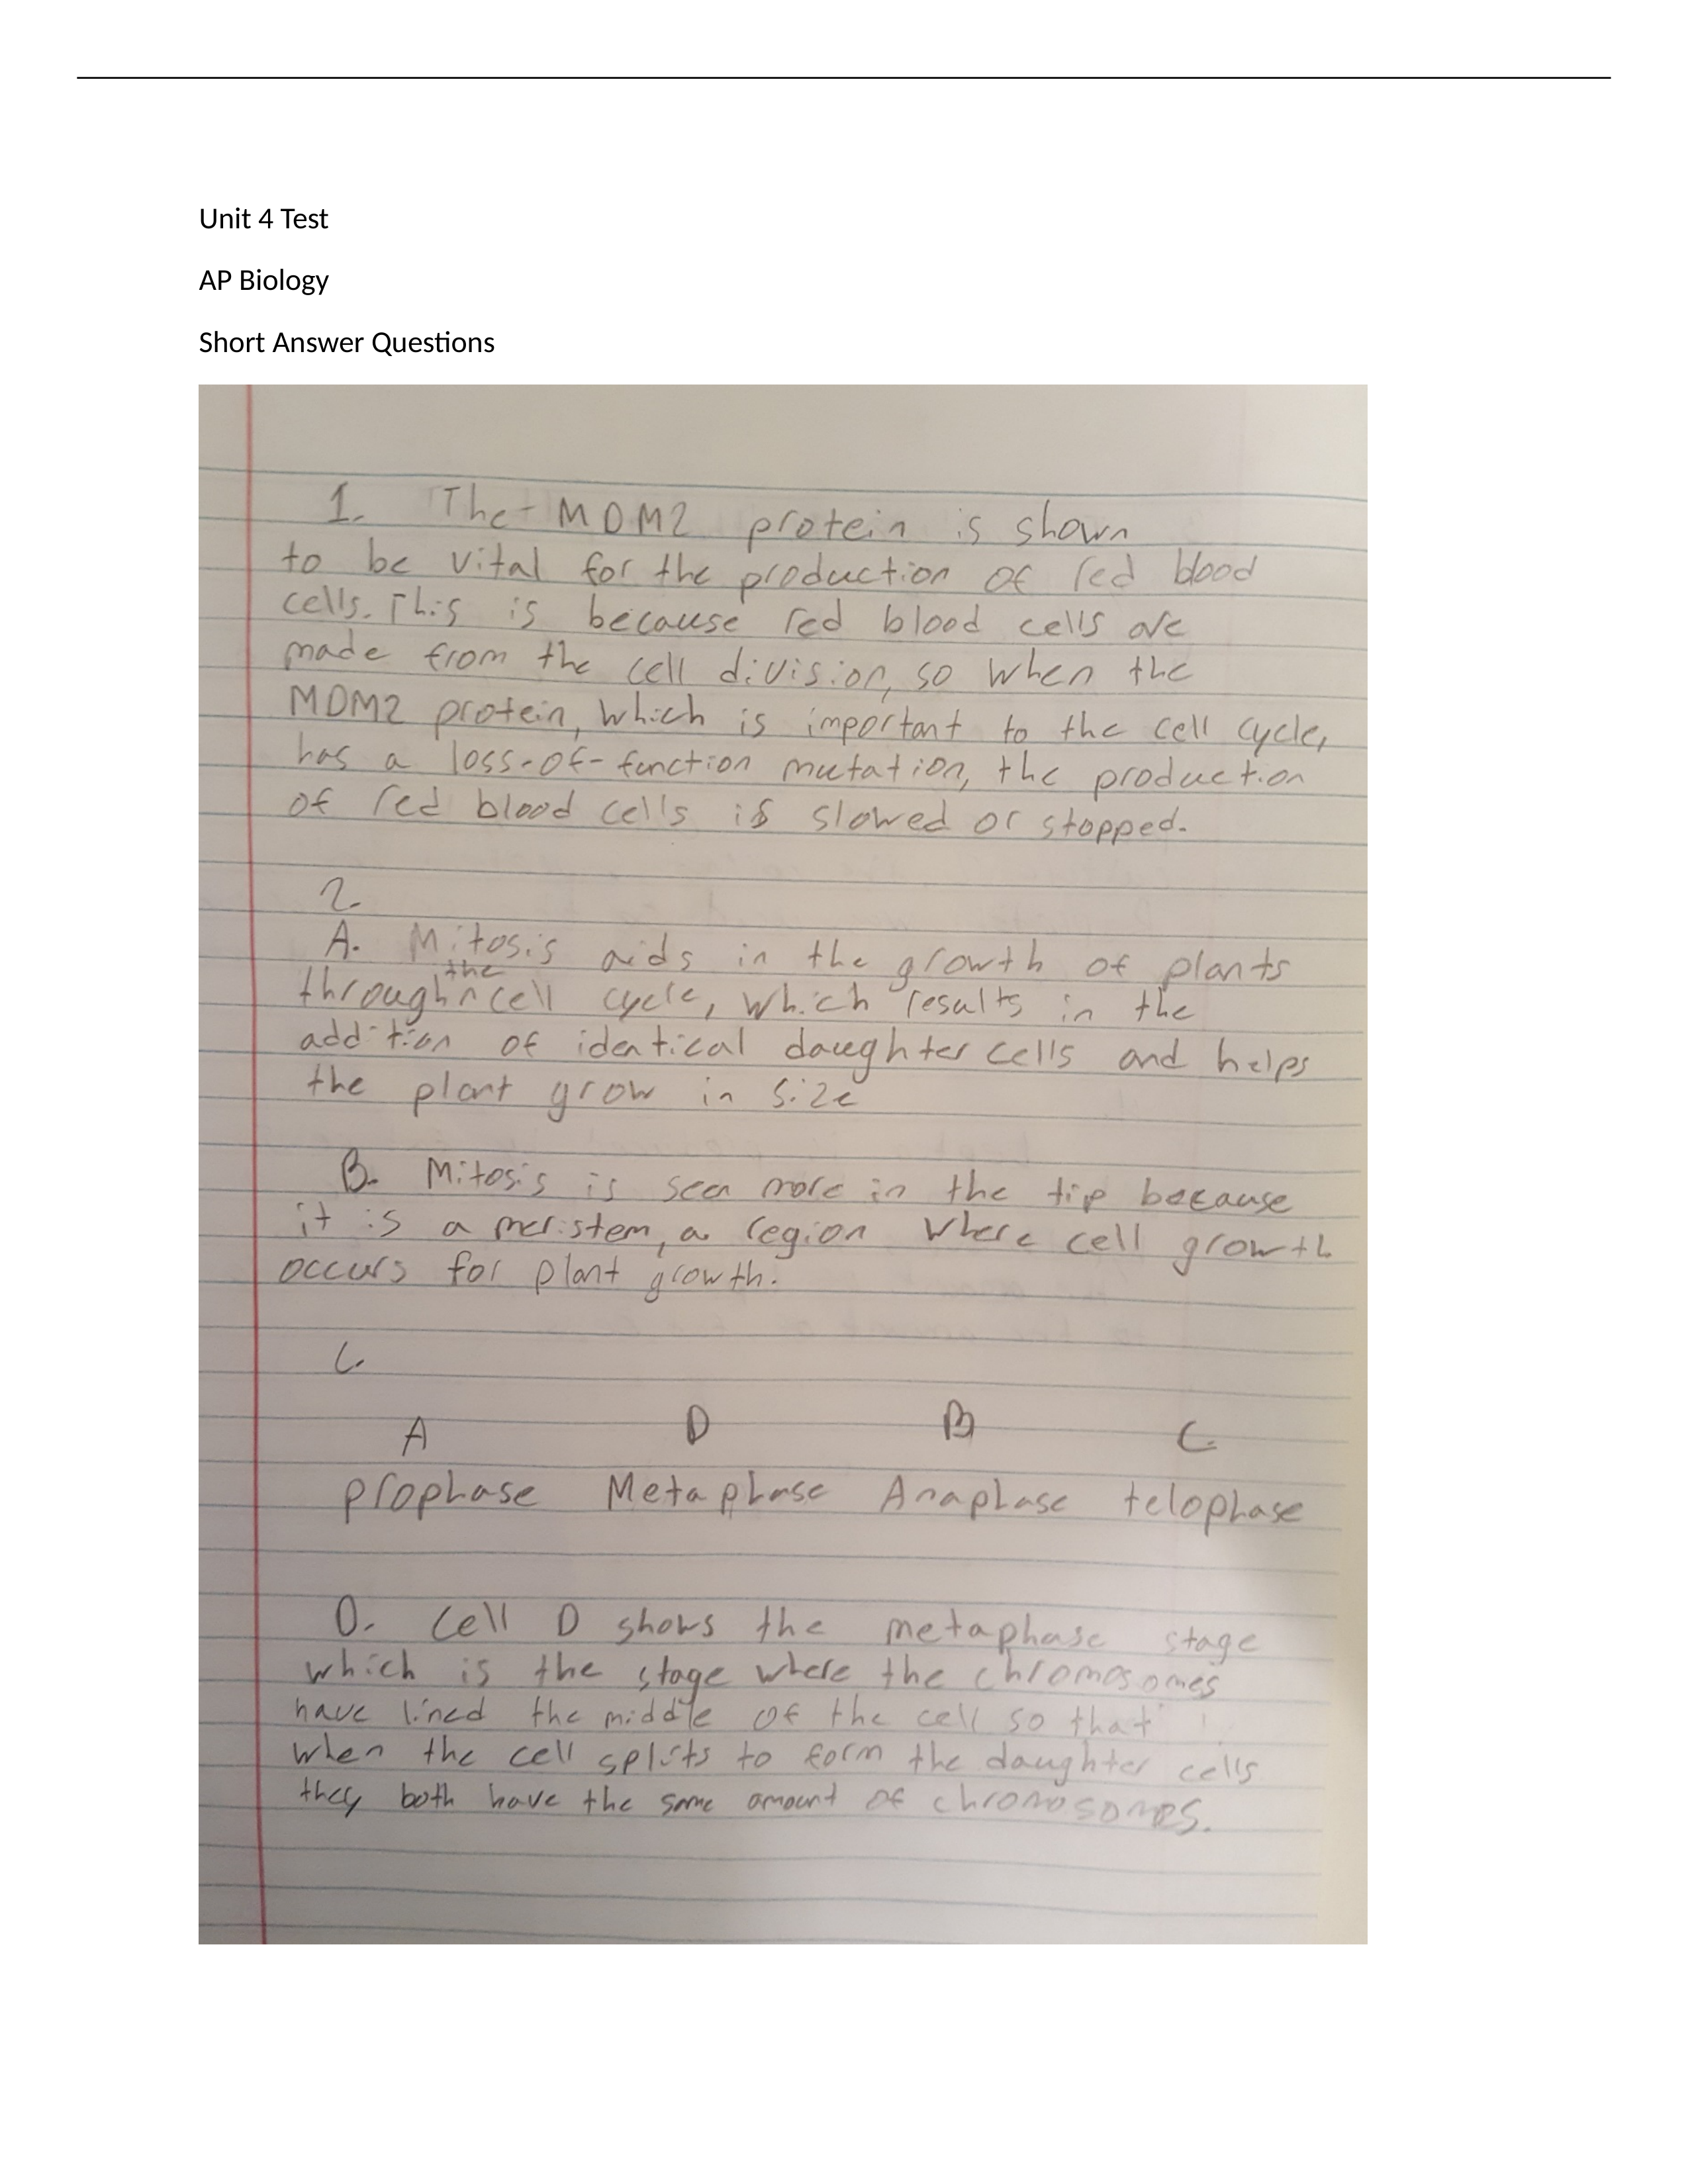 Unit 4 Test
AP Biology
Short Answer Questions
1. The MDM2 protein is shown
to be vital for the production of red blood
cells. This is because red blood cells are
made from the cell division, so when the
MDM2 protein, which is important to the cell cycle,
has a loss-of-function mutation, the production
of red blood cells is slowed or stopped.
2.
A. Mitosis aids in the growth of plants
through the cell cycle, which results in the
addition of identical daughter cells and helps
the plant grow in size
B. Mitosis is seen more in the tip because
it is a meristem, a region where cell growth
occurs for plant growth.
C.
A D B C
prophase Metaphase Anaphase telophase
D. Cell D shows the metaphase stage
which is the stage where the chromosomes
have lined the middle of the cell so that
when the cell splits to form the daughter cells
they both have the same amount of chromosomes.